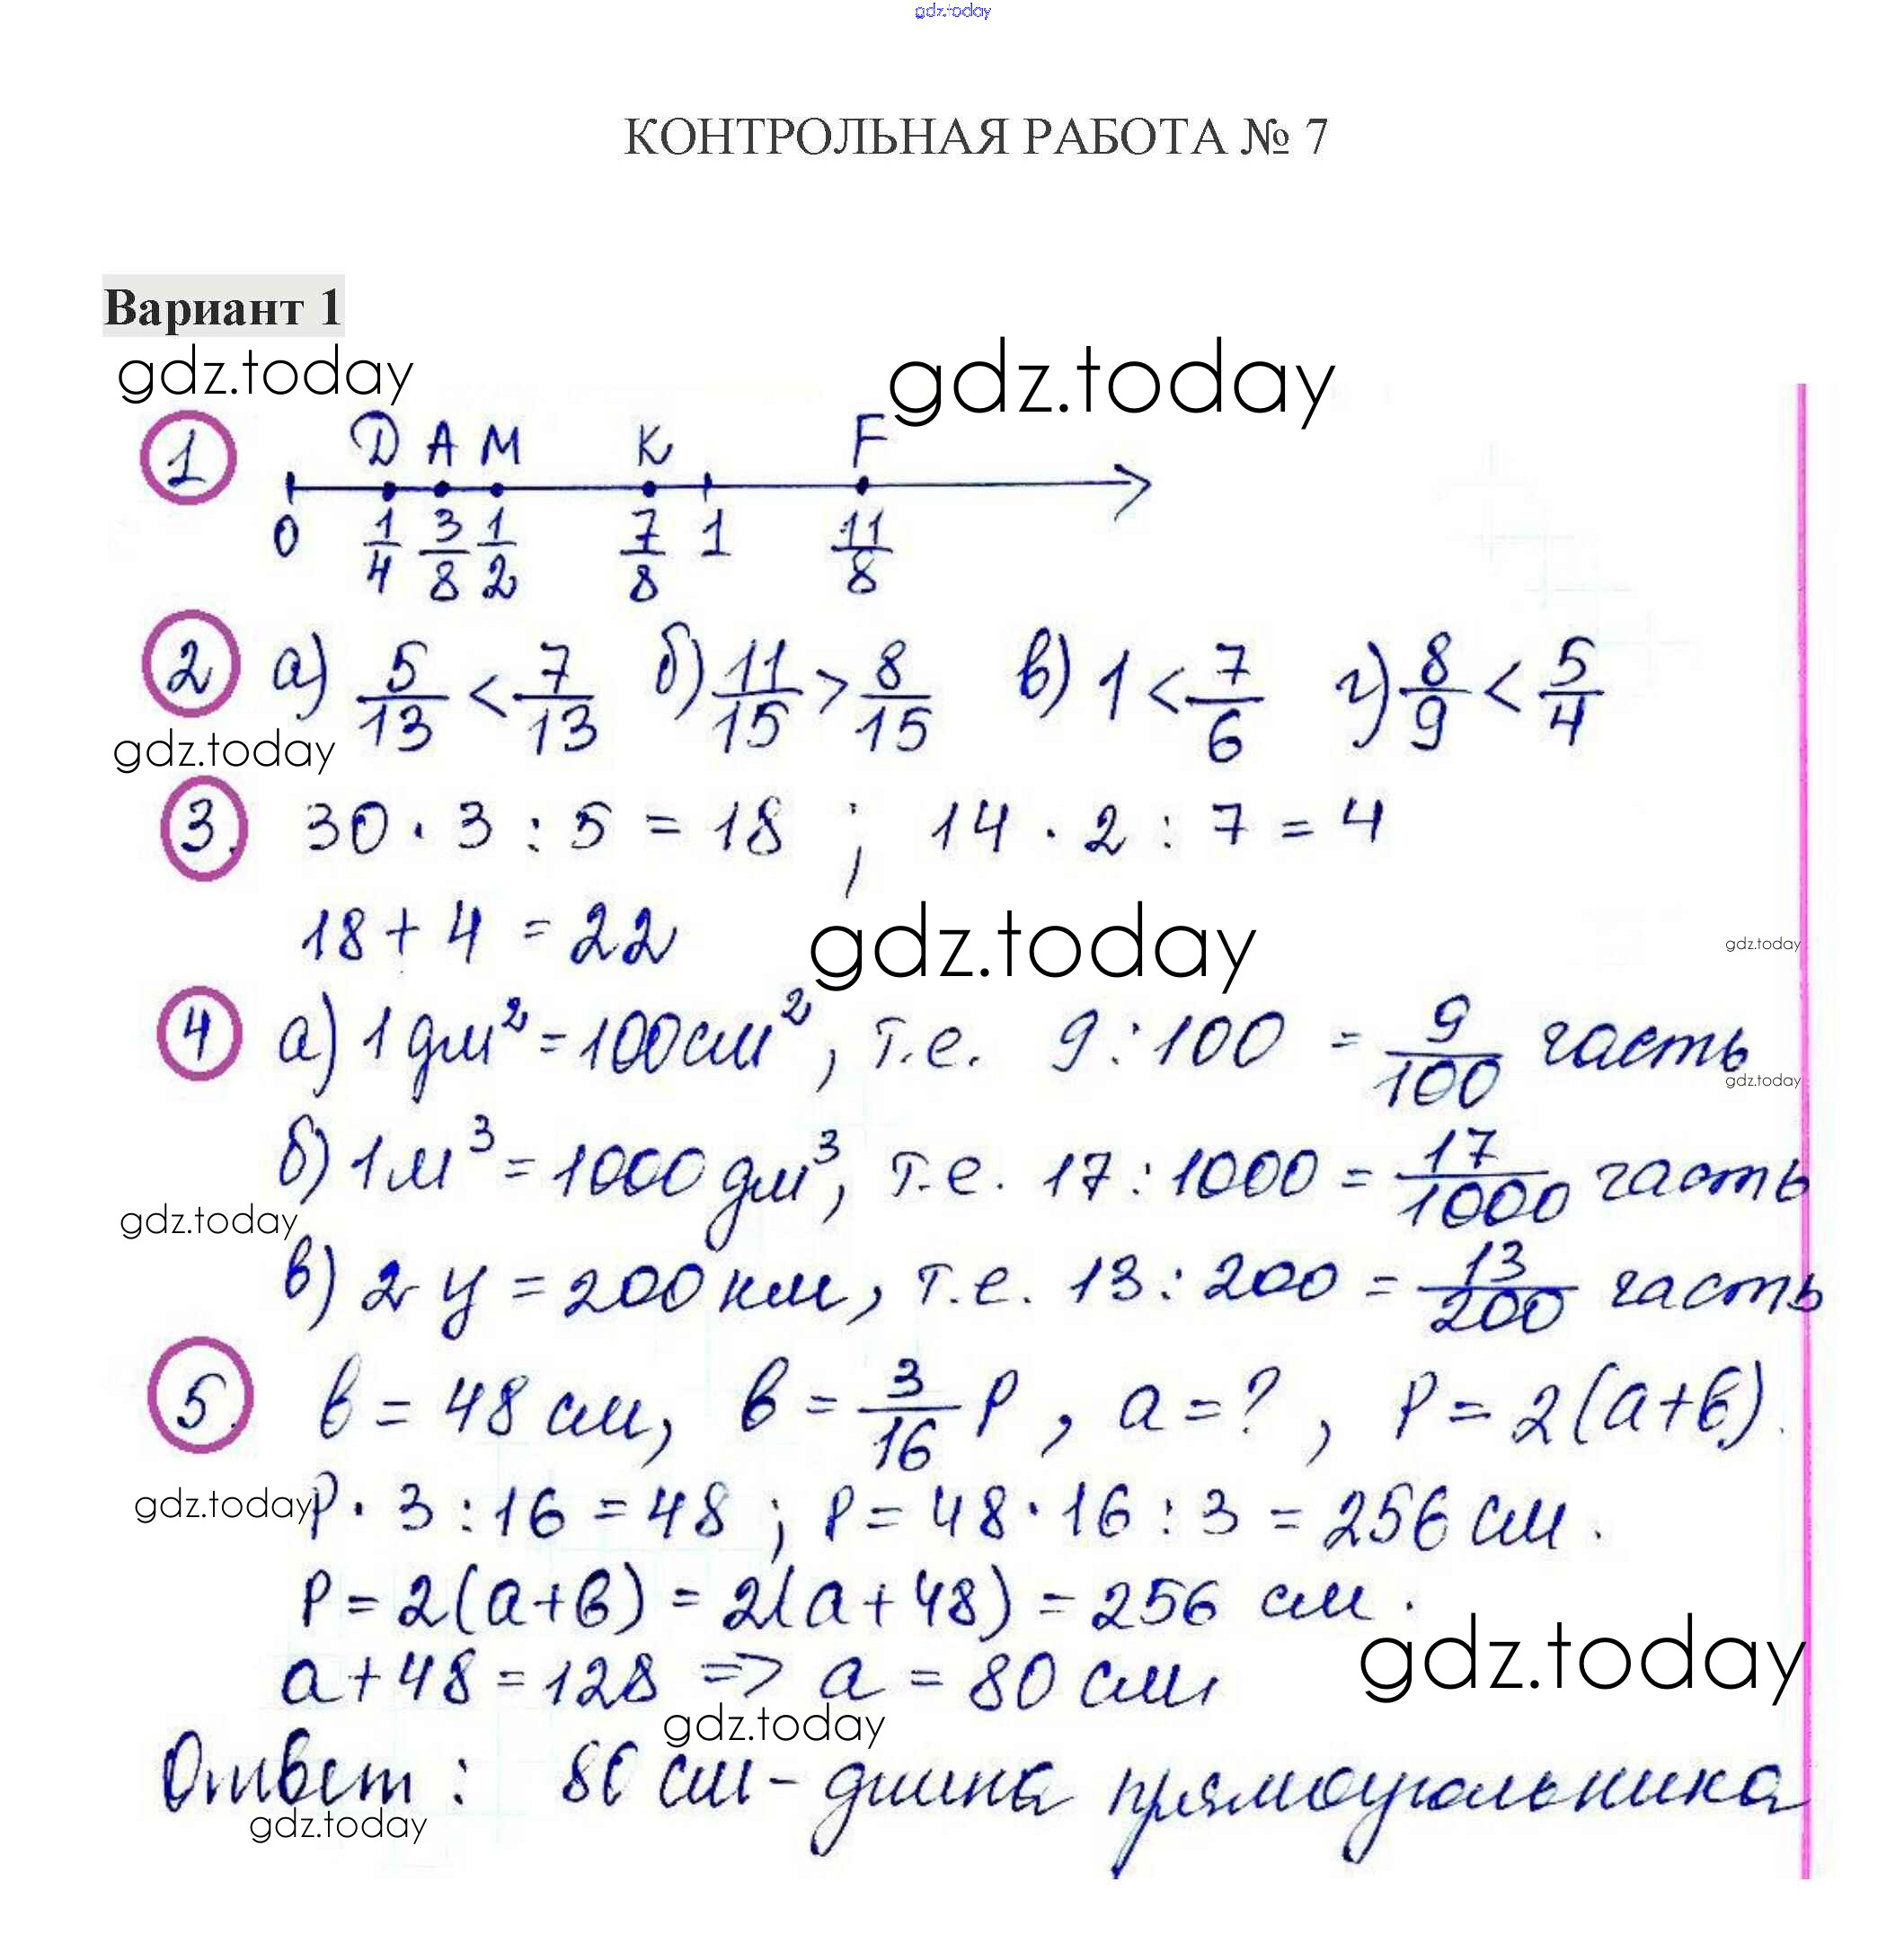 gdz.today
КОНТРОЛЬНАЯ РАБОТА № 7
Вариант 1
gdz.today gdz.today
1 D A M K F
0 1/4 3/8 1/2 7/8 1 11/8
2 а) 5/13 < 7/13 б) 11/15 > 8/15 в) 1 < 7/6 г) 8/9 < 5/4
gdz.today
3. 30 · 3 : 5 = 18 ; 14 · 2 : 7 = 4
18 + 4 = 22
gdz.today gdz.today
4 а) 1 дм² = 100 см², т.е. 9 : 100 = 9/100 часть
gdz.today
б) 1 м³ = 1000 дм³, т.е. 17 : 1000 = 17/1000 часть
gdz.today
в) 2 ц = 200 км, т.е. 13 : 200 = 13/200 часть
5. в = 48 см, в = 3/16 P, a = ?, P = 2(a+в).
gdz.today P · 3 : 16 = 48 ; P = 48 · 16 : 3 = 256 см.
P = 2(a+в) = 2(a+48) = 256 см.
gdz.today
a + 48 = 128 => a = 80 см,
gdz.today
Ответ : 80 см - длина прямоугольника
gdz.today